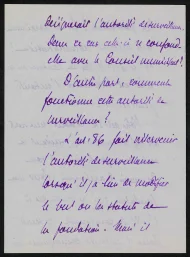 désignerait l'autorité de surveillance.
Dans ce cas celle-ci se confond
elle avec le Conseil municipal?
D'autre part, comment
fonctionne cette autorité de
surveillance?
L'art. 86 fait intervenir
l'autorité de surveillance
lorsqu'il y a lieu de modifier
le but ou les statuts de
la fondation. Mais il